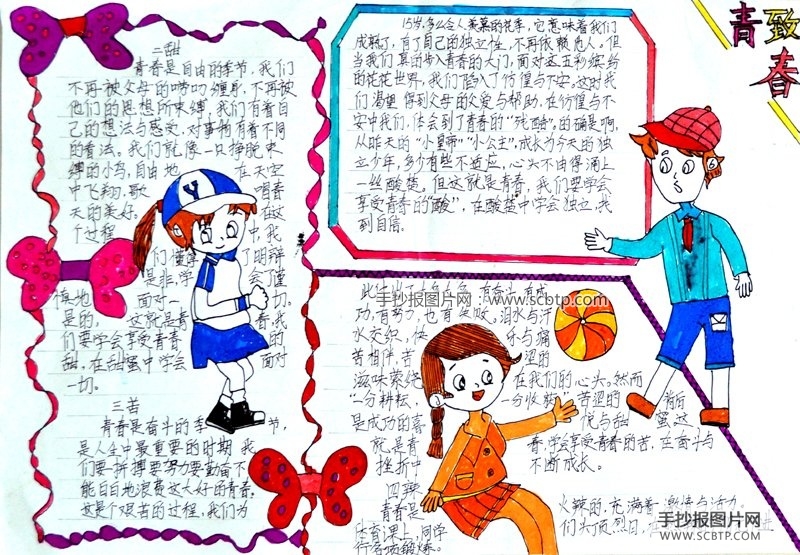 致
青春
15岁,多么令人羡慕的花季,它意味着我们
成熟了,有了自己的独立性,不再依赖他人。但
当我们真的步入青春的大门,面对这五彩缤纷
的花花世界,我们陷入了彷徨与不安。这时我
们渴望得到父母的关爱与帮助,在彷徨与不
安中我们,体会到了青春的“残酷”。的确是啊,
从昨天的“小皇帝”“小公主”,成长为今天的独
立少年,多少有些不适应,心头不由得涌上
一丝酸楚。但这就是青春,我们要学会
享受青春的“酸”,在酸楚中学会独立,找
到自信。
三甜
青春是自由的季节,我们
不再被父母的唠叨缠身,不再被
他们的思想所束缚,我们有着自
己的想法与感受,对事物有着不同
的看法。我们就像一只挣脱束
缚的小鸟,自由地 在天空
中飞翔,歌 唱春
天的美好。 在这
个过程 中,我
们懂得 了明辨
是非,学 会了谨
慎地 面对一 切。
是的, 这就是青 春,我
们要学会享受青春 的
甜,在甜蜜中学会 面对
一切。
三苦
青春是奋斗的季 节,
是人生中最重要的时期,我
们要拼搏要努力要勤奋,不
能白白地浪费这大好的青春。
这是个艰苦的过程,我们为
此
功,有努力,也有失败。泪水与汗
水交织, 与痛
苦相伴,苦 涩的
滋味萦绕 在我们的心头。然而
“一分耕耘, 一分收 苦涩的 背后
是成功的喜 悦与甜 蜜,这
就是青 春,学会享受青春的苦,在奋斗与
挫折中 不断成长。
四辣
青春是 火辣的,充满着激情与活力,
体育课上,同学 们头顶烈日,在 进
行各项锻炼。
手抄报图片网 www.scbtp.com
手抄报图片网
SCBTP.COM
Y